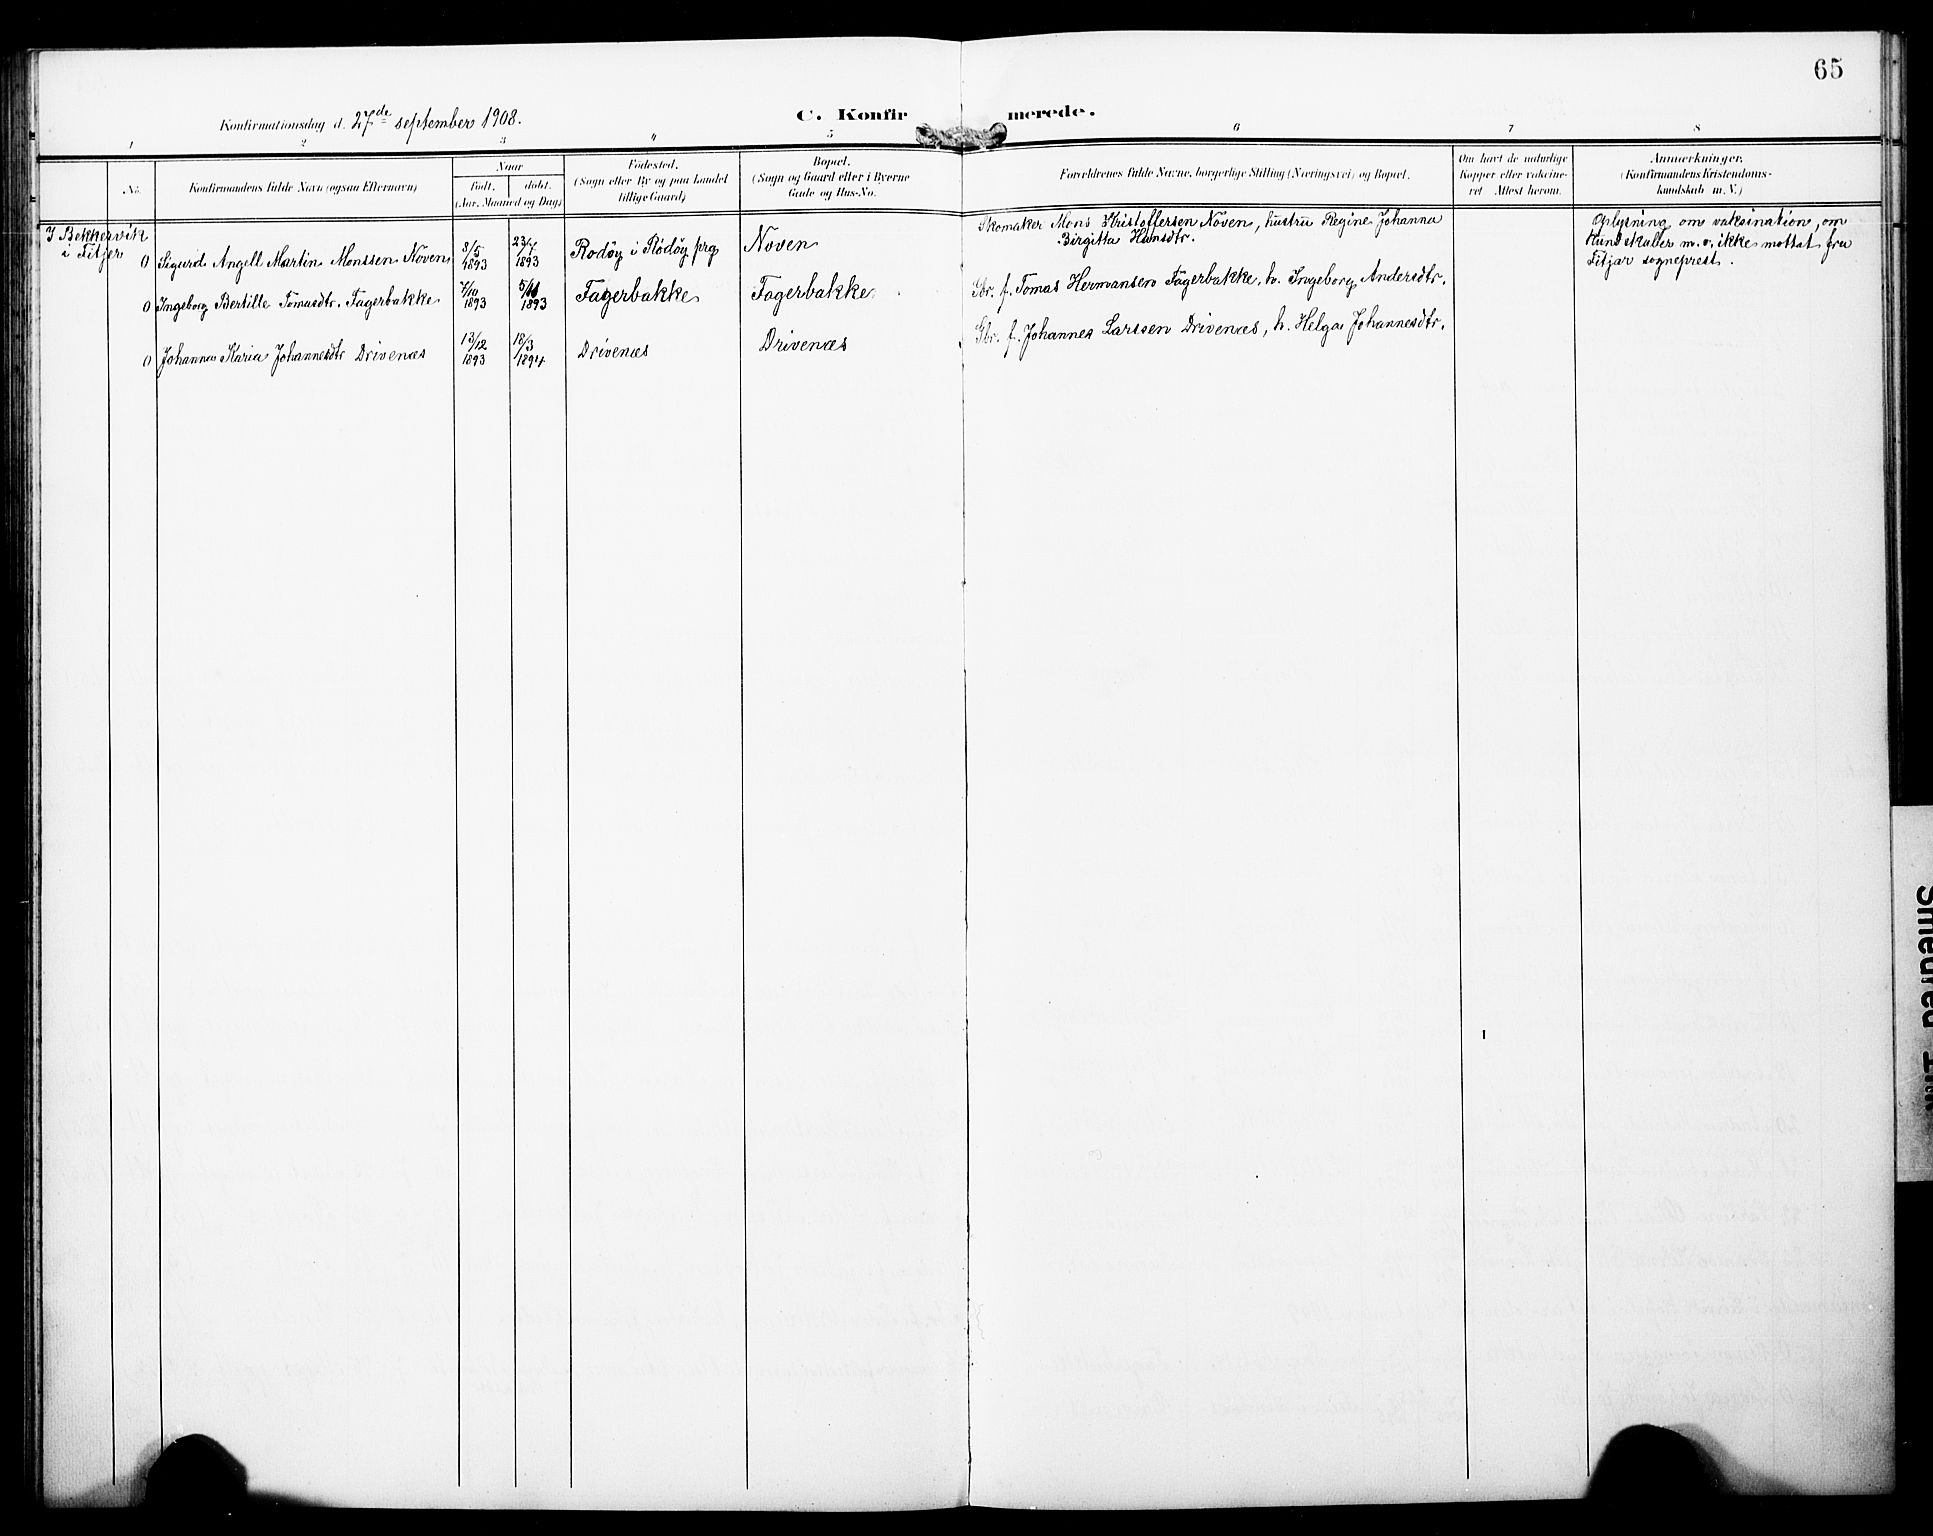 65
Konfirmationsdag d. 27de september 1908.
C. Konfirmerede.
1 2 3 4 5 6 7 8
No.
Konfirmandens fulde Navn (ogsaa Efternavn)
Naar
født.
døbt.
(Aar, Maaned og Dag)
Fødested.
(Sogn eller By og paa Landet
tillige Gaard)
Bopæl.
(Sogn og Gaard eller i Byerne
Gade og Hus-No.
Forældrenes fulde Navne, borgerlige Stilling (Næringsvei) og Bopæl.
Om havt de naturlige
Kopper eller vakcine-
ret Attest herom.
Anmærkninger.
(Konfirmandens Kristendoms-
kundskab m. V.)
I Bekkervik
i Fitjer
0 Sigurd Angell Martin Monssen Nøven 8/5 1893 23/7 1893 Rødøy i Rødøy prg Nøven Skomaker Mons Kristoffersen Nøven, hustru Regine Johanna
Birgitta Hansdtr.
Oplysning om vaksination, om
kundskaber m. v. ikke mottat fra
Fitjar sogneprest.
0 Ingeborg Bertille Tomasdtr. Fagerbakke 7/10 1893 5/11 1893 Fagerbakke Fagerbakke Gbr. f. Tomas Hermansen Fagerbakke, h. Ingeborg Andersdtr.
0 Johanna Karia Johannesdtr Drivenæs 13/12 1893 18/3 1894 Drivenæs Drivenæs Gbr. f. Johannes Larssen Drivenæs, h. Helga Johannesdtr.
Smeared Ink